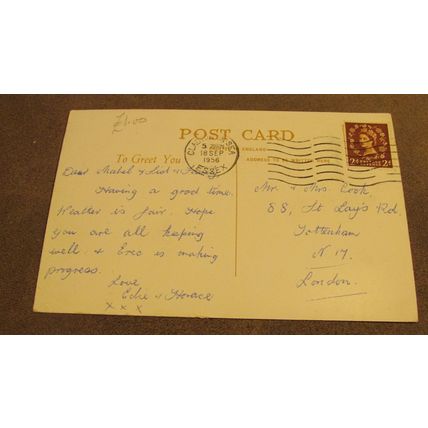 £1.00
POST CARD
To Greet You
ENGLAND
ADDRESS TO BE WRITTEN HERE
CLACTON-ON-SEA
5
18 SEP
1956
ESSEX
2d 2d
Dear Mabel & Sid &
Having a good time.
Weather is fair. Hope
you are all keeping
well. & Eric is making
progress.
Love
Edie & Horace
x x x
Mr. & Mrs. Cook,
88, St Loy's Rd
Tottenham
N 17.
London.